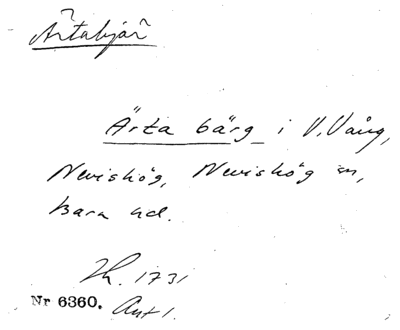 Ärtabjär
Ärta bärg i V. Vång,
Nevishög, Nevishög sn,
Bara hd.
Th. 1731
Nr 6360. Ant 1.